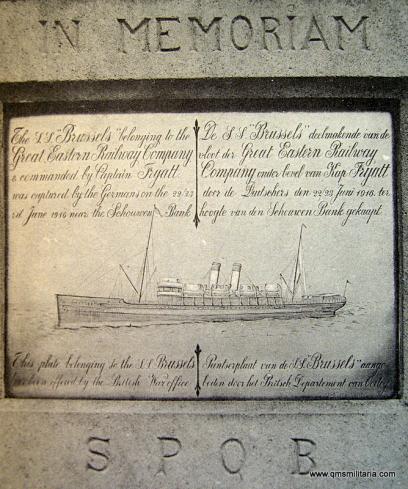 IN MEMORIAM
The S.S. "Brussels" belonging to the
Great Eastern Railway Company
& commanded by Captain Fryatt
was captured by the Germans on the 22/23
rd June 1916 near the Schouwen Bank
De S.S. "Brussels" deelmakende van de
vloot der Great Eastern Railway
Company onder bevel van Kap. Fryatt
door de Duitschers den 22/23 Juni 1916 ter
hoogte van den Schouwen Bank gekaapt
This plate belonging to the S.S. Brussels
been offered by the British War office
van de S.S. "Brussels" aange-
boden door het Britsch Departement van
S P Q B
www.qmsmilitaria.com